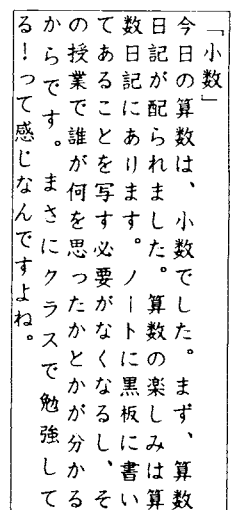 「小数」
今日の算数は、小数でした。まず、算数
日記が配られました。算数の楽しみは算
数日記にあります。ノートに黒板に書い
てあることを写す必要がなくなるし、そ
の授業で誰が何を思ったかとかが分かる
からです。まさにクラスで勉強して
る！って感じなんですよね。